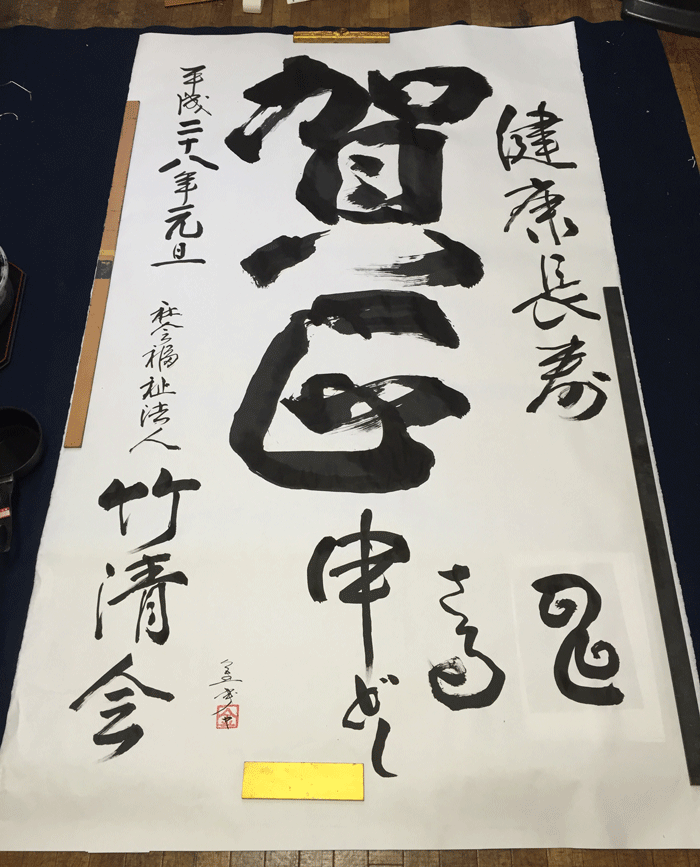 健康長寿
賀正
申どし
さる
平成二十八年元旦
社会福祉法人
竹清会